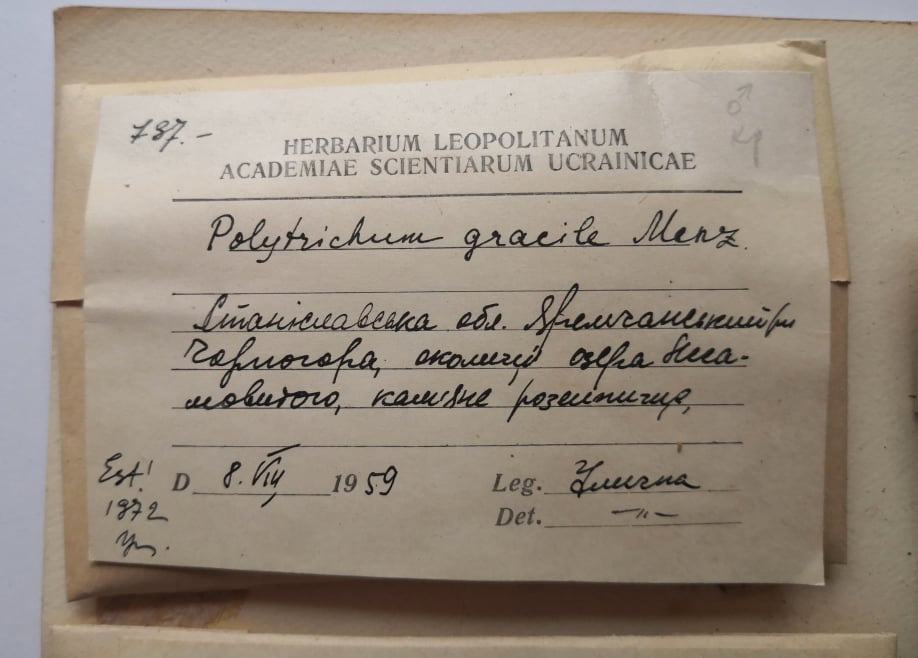 787.-
♂
HERBARIUM LEOPOLITANUM
ACADEMIAE SCIENTIARUM UCRAINICAE
Polytrichum gracile Menz.
Станіславська обл. Яремчанський р-н
Чорногора, околиці озера Неса-
мовитого, кам'яне розсипище,
D 8. VIII 1959
Leg. Улична
Det. —〃—
Ex.!
1972